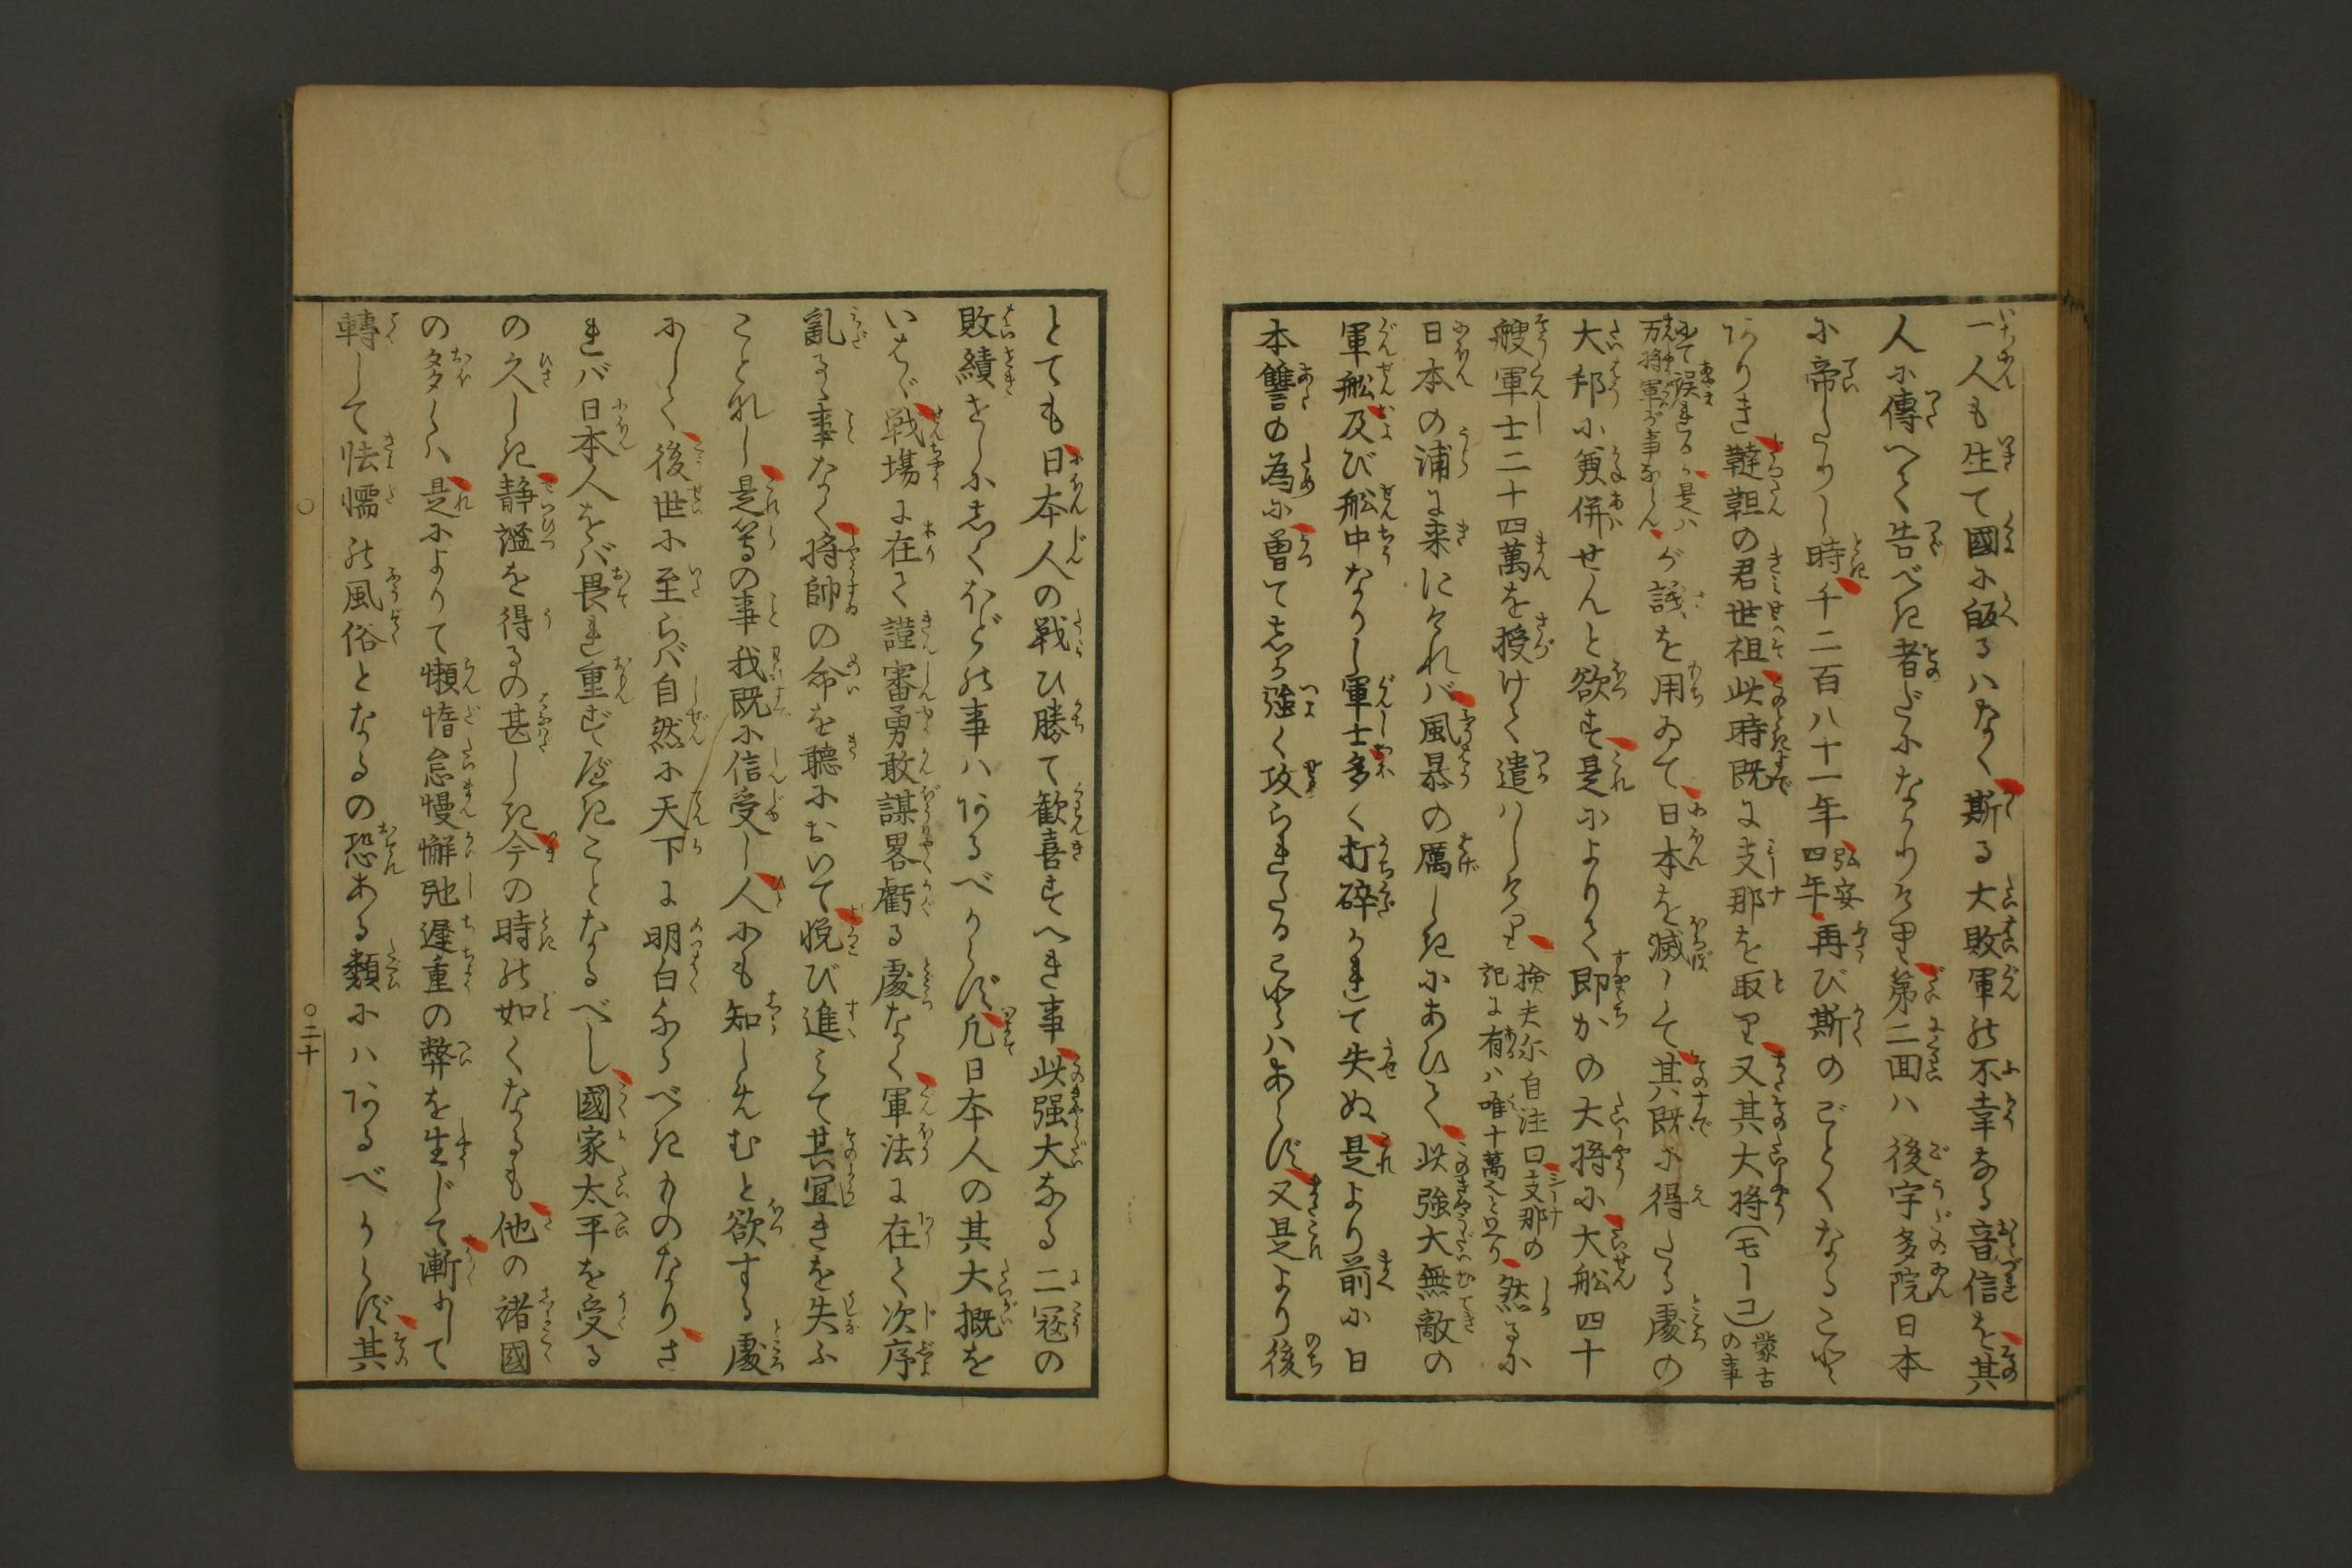 一人も生て國に皈るハなく斯る大敗軍の不幸なる音信を其
人に傳へて告べき者だになかりけり第二回ハ後宇多院日本
に帝たりし時千二百八十一年弘安四年再び斯のごとくなること
ありき韃靼の君世祖此時既に支那を取り又其大将(モーコ)蒙古の事
にて誤れるか是ハ万将軍が事ならんが議を用ゐて日本を滅して其既に得たる處の
大邦に兼併せんと欲す是によりて即かの大将に大舩四十
艘軍士二十四萬を授けて遣ハしけり検夫尓自注曰支那の記に有ハ唯十萬人と云り然るに
日本の浦に来にけれバ風暴の厲しきにあひて此強大無敵の
軍舩及び舩中なりし軍士多く打砕かれて失ぬ是より前に日
本讐の為に曽て志か強く攻られたることハあらず又是より後
とても日本人の戦ひ勝て歓喜すへき事此强大なる二寇の
敗績をしに志くほどの事ハあるべからず凡日本人の其大概を
いはゞ戦塲に在て謹審勇敢謀畧虧る處なく軍法に在て次序
亂るゝ事なく将帥の命を聽において悦び進ミて其宜きを失ふ
ことなし是等の事我既に信受し人にも知しめむと欲する處
にして後世に至らバ自然に天下に明白なるべきものなりさ
れバ日本人をバ畏れ重ずべきことなるべし國家太平を受る
の久しき静謐を得るの甚しき今の時の如くなるも他の諸國
の多くハ是によりて懶惰怠慢懈弛遲重の弊を生じて漸にして
轉して怯懦の風俗となるの恐ある類にハあるべからず其
○二十